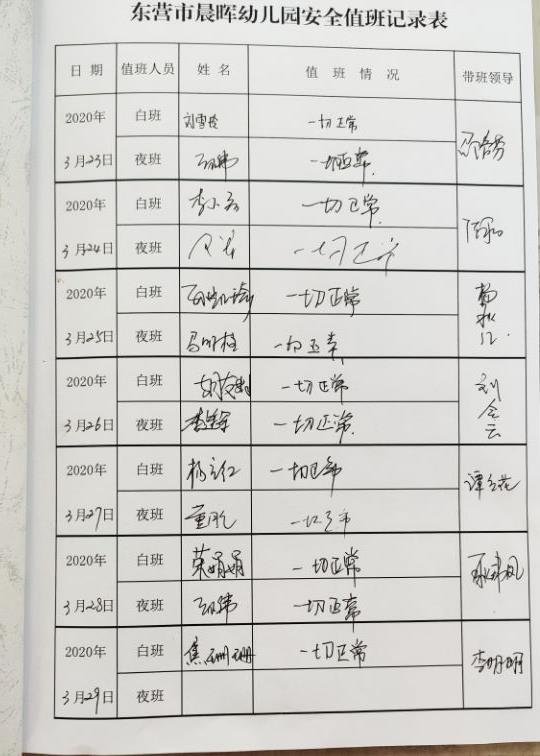 东营市晨晖幼儿园安全值班记录表
日 期 值班人员 姓 名 值 班 情 况 带班领导
2020年 白班 刘雪玲 一切正常
3月23日 夜班 一切正常
2020年 白班 一切正常
3月24日 夜班 一切正常
2020年 白班 一切正常
3月25日 夜班 马明柱 一切正常
2020年 白班 一切正常 刘会云
3月26日 夜班 一切正常
2020年 白班 杨立红 一切正常 谭立花
3月27日 夜班 一切正常
2020年 白班 荣娟娟 一切正常
3月28日 夜班 一切正常
2020年 白班 焦珊珊 一切正常 李明明
3月29日 夜班